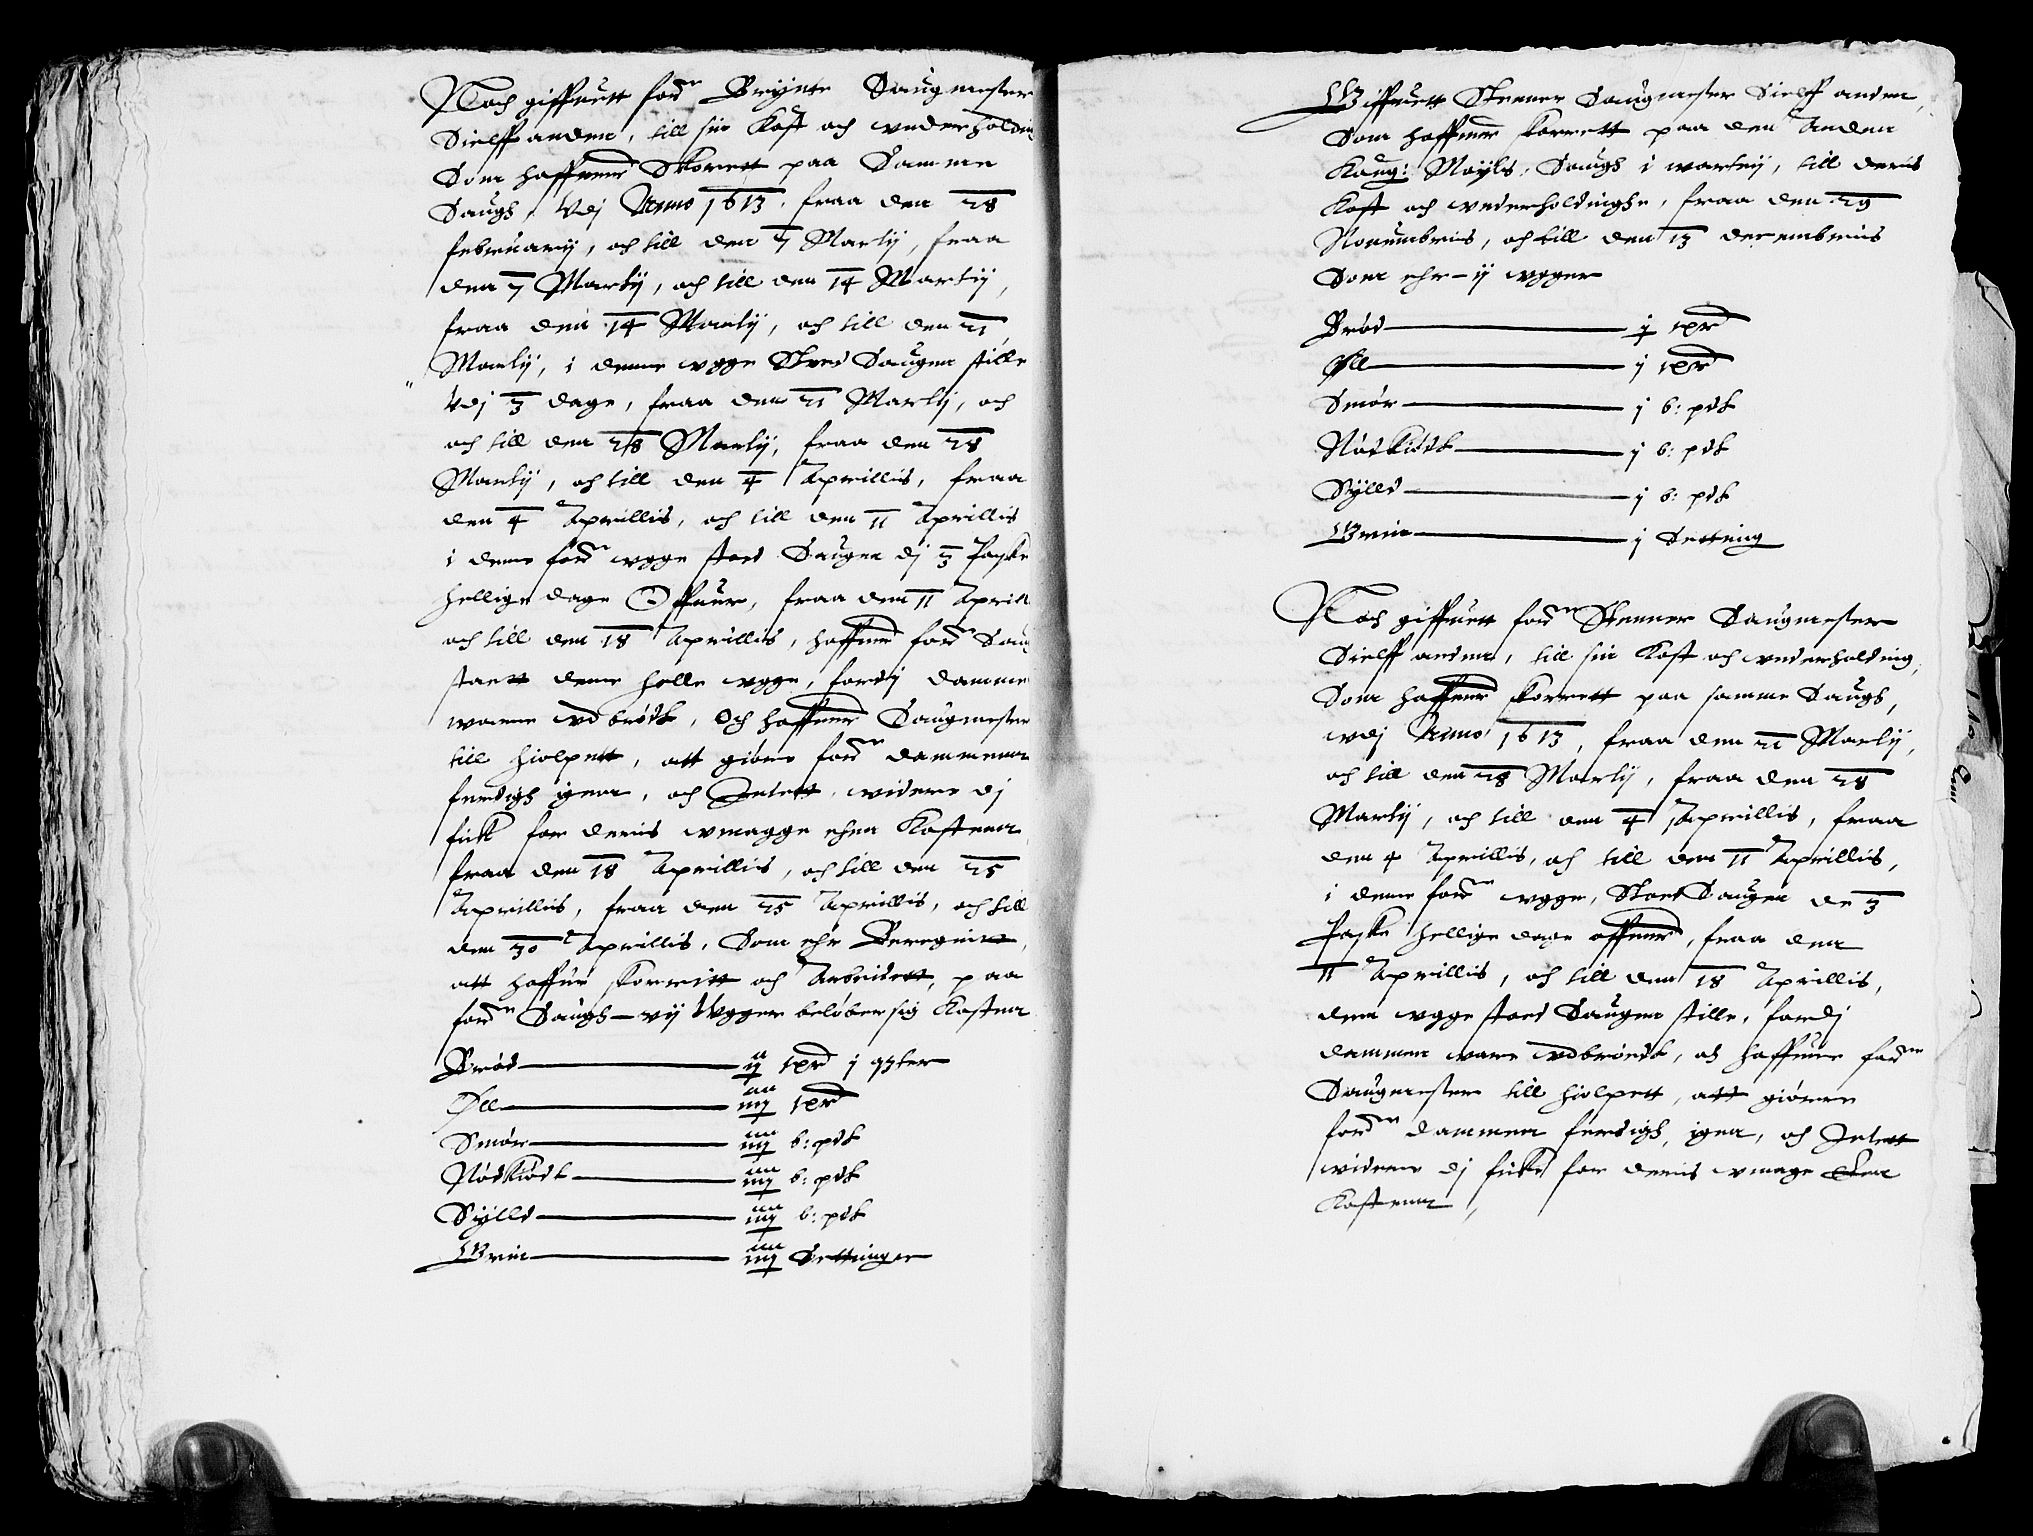 Noch giffuett for.ne Brynte Saugmester
Sielff anden, till sin Kost och vnderholdin
Som haffuer Skorett paa Samme
Saugh, Vdj Anno 1613, fraa den 28
february, och till den 7 Martij, fraa
den 7 Martij, och till den 14 Martij,
fraa den 14 Martij, och till den 21
Martij, i denne vgge Stod Saugen stille
Vdj 3 dage, fraa den 21 Martij, och
och till den 28 Martij, fraa den 28
Martij, och till den 4 Aprillis, fraa
den 4 Aprillis, och till den 11 Aprillis
i denne for.ne vgge stod Saugen dj 3 Paske
hellige dage Offuer, fraa den 11 Aprill
och till den 18 Aprillis, haffuer for.ne Saug
staett denne helle vgge, fordj dammen
waare vdbrödt, Och haffuer Saugmester
till hiolpett, att giöre for.ne dammenn
ferdigh igen, och Intett widere dj
fick for deris vmagge ehnn Kostenn
fraa den 18 Aprillis, och till den 25
Aprillis, fraa den 25 Aprillis, och till
den 30 Aprillis, Som ehr Beregnitt,
att haffue skorritt och Arbeidett, paa
for.ne Saugh – vij Vgger beløber sig Kosten
Brød — ij tød j qrter
Øll — iiij tød
Smør — iiij b: pdt
Nødkiødt — iiij b: pdt
Sylld — iiij b: pdt
Gren — iiij Settinger
Giffuett Stenner Saugmester Sielff anden,
Som haffuer skorrett paa den Anden
Kong: Mayts: Saugh i , till deris
Kost och vnderholdinghe, fraa den 29
Nouembris, och till den 13 decembris
Som ehr – ij vgger
Brød — j tød
Øll — j tød
Smør — j b: pdt
Nødkiødt — j b: pdt
Sylld — j b: pdt
Gren — j Setting
Noch giffuett for.ne Stenner Saugmester
Sielff anden, till sin Kost och vnderholding,
Som haffuer skorrett paa samme Saugh,
vdj Anno 1613, fraa den 21 Martij,
och till den 28 Martij, fraa den 28
Martij, och till den 4 Aprillis, fraa
den 4 Aprillis, och till den 11 Aprillis,
i denne for.ne vgge, Stod Saugen de 3
Paske hellige dage offuer, fraa den
11 Aprillis, och till den 18 Aprillis,
denn vgge stod Saugen stille, fordj
dammen ware vdbrödt, och haffuer for.ne
Saugmester till hiolpett, att giörre
for.ne dammen ferdigh, igen, och Intett
videre dj fick for deris vmage ehnn
Kostenn,